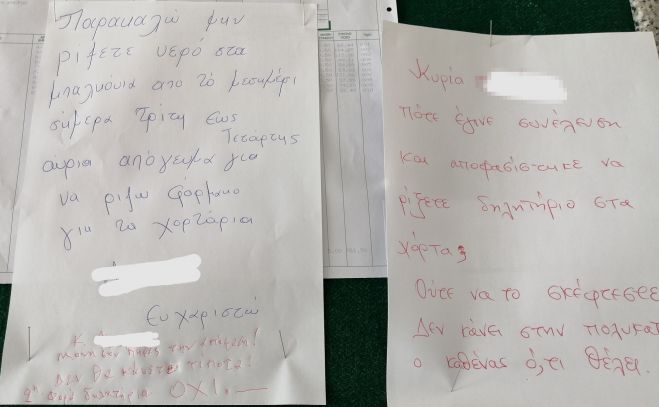 Παρακαλώ μην
ρίξετε νερό στα
μπαλκόνια απο τό μεσημέρι
σήμερα Τρίτη εως
Τετάρτης
αυριο απόγευμα για
να ριξω φάρμακο
για τα χορτάρια
Ευχαριστώ
Κ
την
Δεν θα τίποτα!
2η φορά δηλητήρια ΟΧΙ.
Κυρία
Πότε έγινε συνέλευση
και αποφασίστηκε να
ρίξετε δηλητήριο στα
χόρτα;
Ούτε να το σκέφτεσρε
Δεν κάνει στην πολυκατ
ο καθένας ό,τι θέλει.